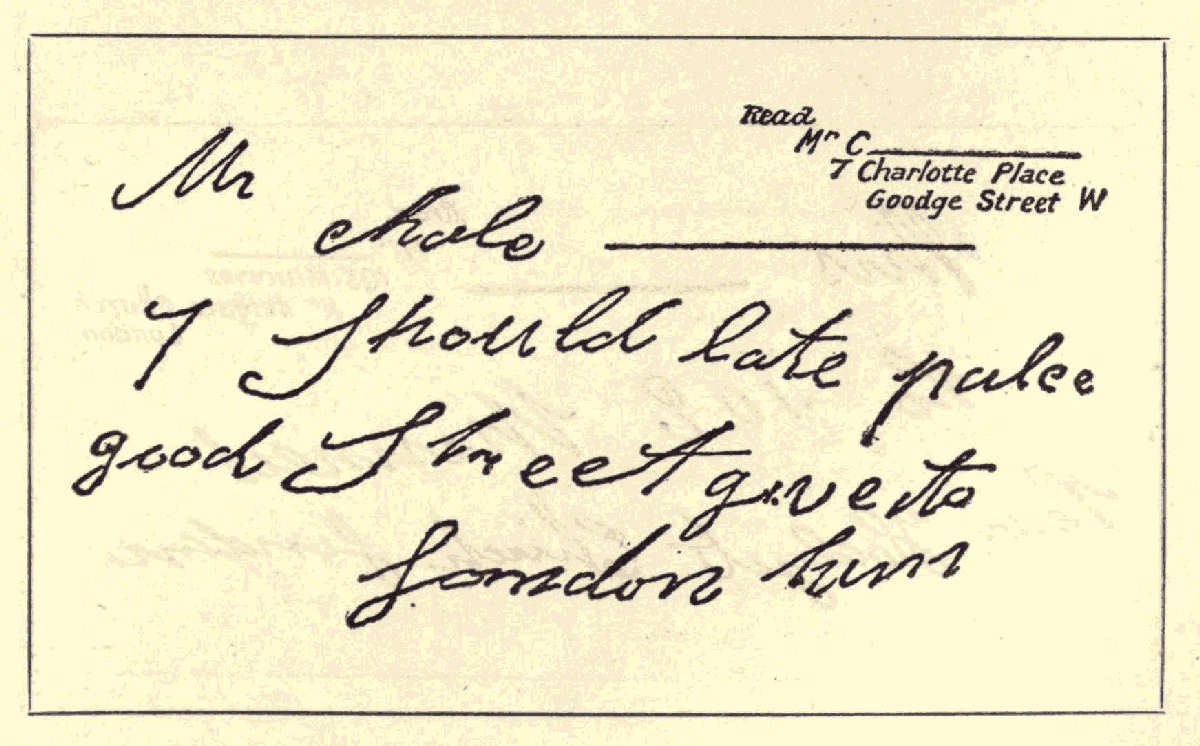 Read
Mr C
7 Charlotte Place
Goodge Street W
Mr
chale
7 Should late palce
good Street give to
London hum